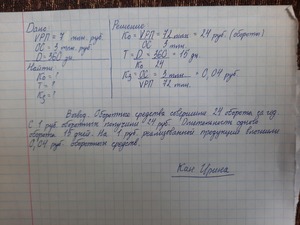 Дано
Решение
VРП = 7 млн. руб.
Ко = VРП = 72 млн = 24 руб. (оборота)
ОС = 3 млн. руб.
ОС 3 млн.
D = 360 дн.
T = D = 360 = 15 дн.
Найти
Ко 24
Ко = ?
Кз = ОС = 3 млн. = 0,04 руб.
T = ?
VРП 72 млн.
Кз = ?
Вывод. Оборотные средства совершили 24 оборота за год.
С 1 руб. оборотных получили 24 руб. одного
оборота 15 дней. На 1 руб. реализованной продукции
0,04 руб. оборотных средств.
Кан Ирина